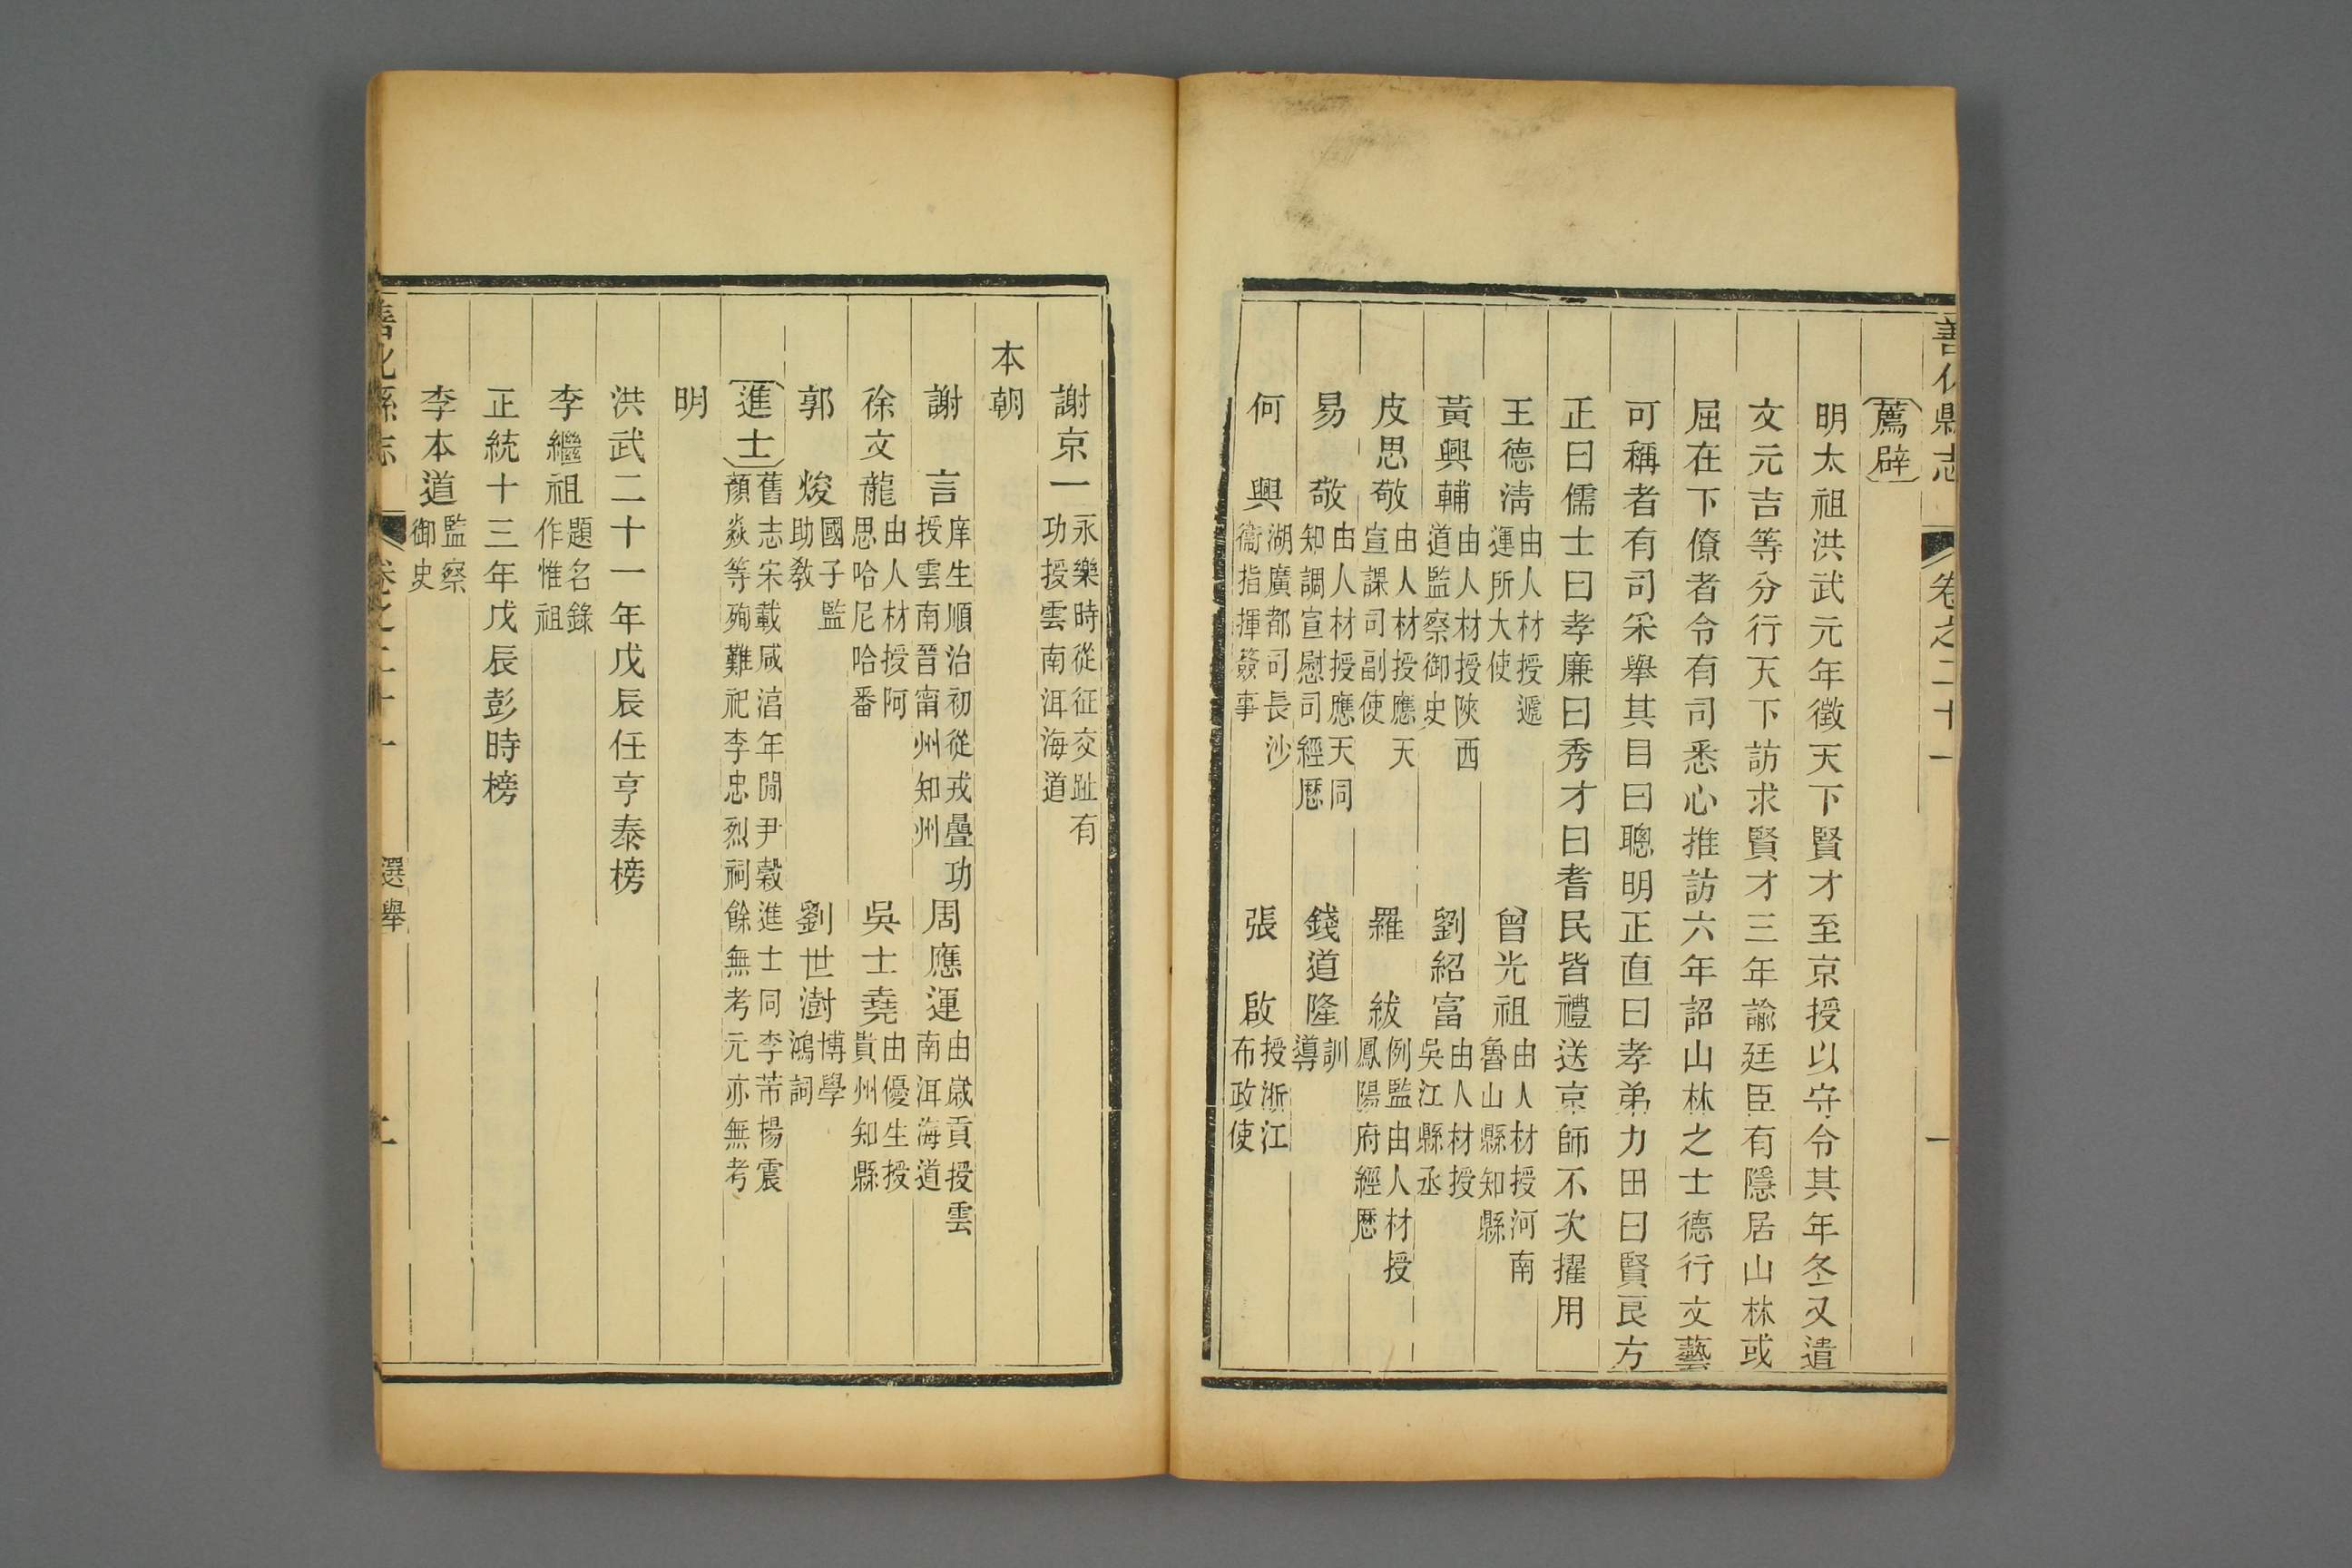 善化縣志 卷之二十一 一
薦辟
明太祖洪武元年徵天下賢才至京授以守令其年冬又遣
文元吉等分行天下訪求賢才三年諭廷臣有隱居山林或
屈在下僚者令有司悉心推訪六年詔山林之士德行文藝
可稱者有司采舉其目曰聰明正直曰孝弟力田曰賢良方
正曰儒士曰孝廉曰秀才曰耆民皆禮送京師不次擢用
王德淸 由人材授遞運所大使 曾光祖 由人材授河南魯山縣知縣
黃興輔 由人材授陝西道監察御史 劉紹富 由人材授吳江縣丞
皮思敬 由人材授應天宣課司副使 羅紱 例監由人材授鳳陽府經歷
易敬 由人材授應天同知調宣慰司經歷 錢道隆 訓導
何興 湖廣都司長沙衞指揮簽事 張啟 授浙江布政使
謝京一 永樂時從征交趾有功授雲南洱海道
本朝
謝言 庠生順治初從戎疊功授雲南晉甯州知州 周應運 由歲貢授雲南洱海道
徐文龍 由人材授阿思哈尼哈番 吳士堯 由優生授貴州知縣
郭焌 國子監助教 劉世澍 博學鴻詞
進士 舊志宋載咸淳年閒尹穀進士同李芾楊震顏焱等殉難祀李忠烈祠餘無考元亦無考
明
洪武二十一年戊辰任亨泰榜
李繼祖 題名錄作惟祖
正統十三年戊辰彭時榜
李本道 監察御史
善化縣志 卷之二十一 選舉 一